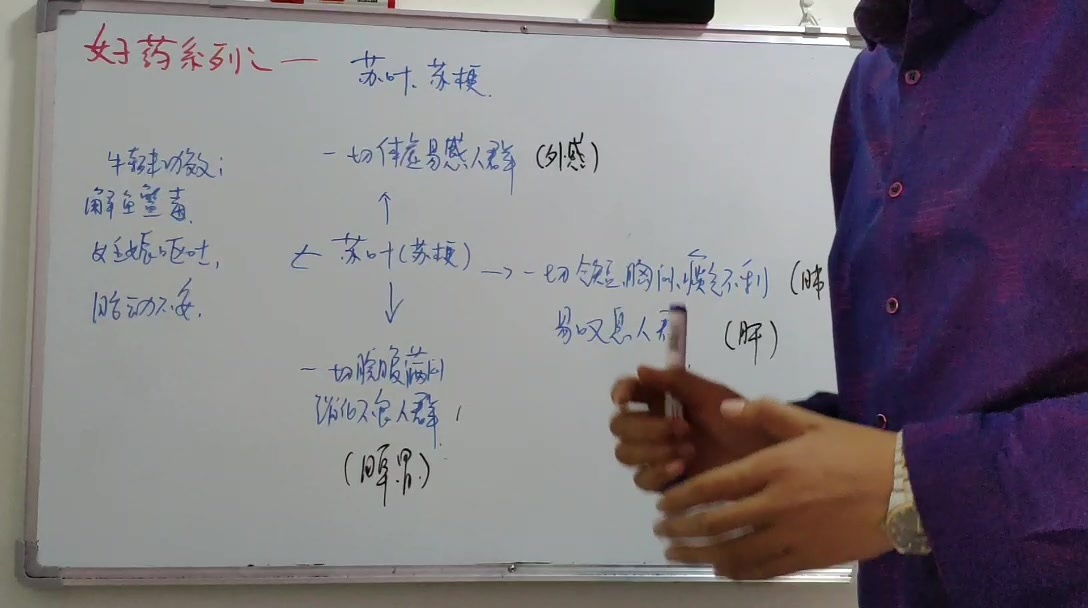 好药系列之一
苏叶、苏梗.
一切体虚易感人群 (外感)
特殊功效:
解鱼蟹毒.
女妊娠呕吐,
胎动不安.
↑
← 苏叶(苏梗) →
一切气短.胸闷.痰气不利 (肺
易叹息人群 (肝)
↓
一切脘腹满闷
消化不良人群,
(脾.胃.)